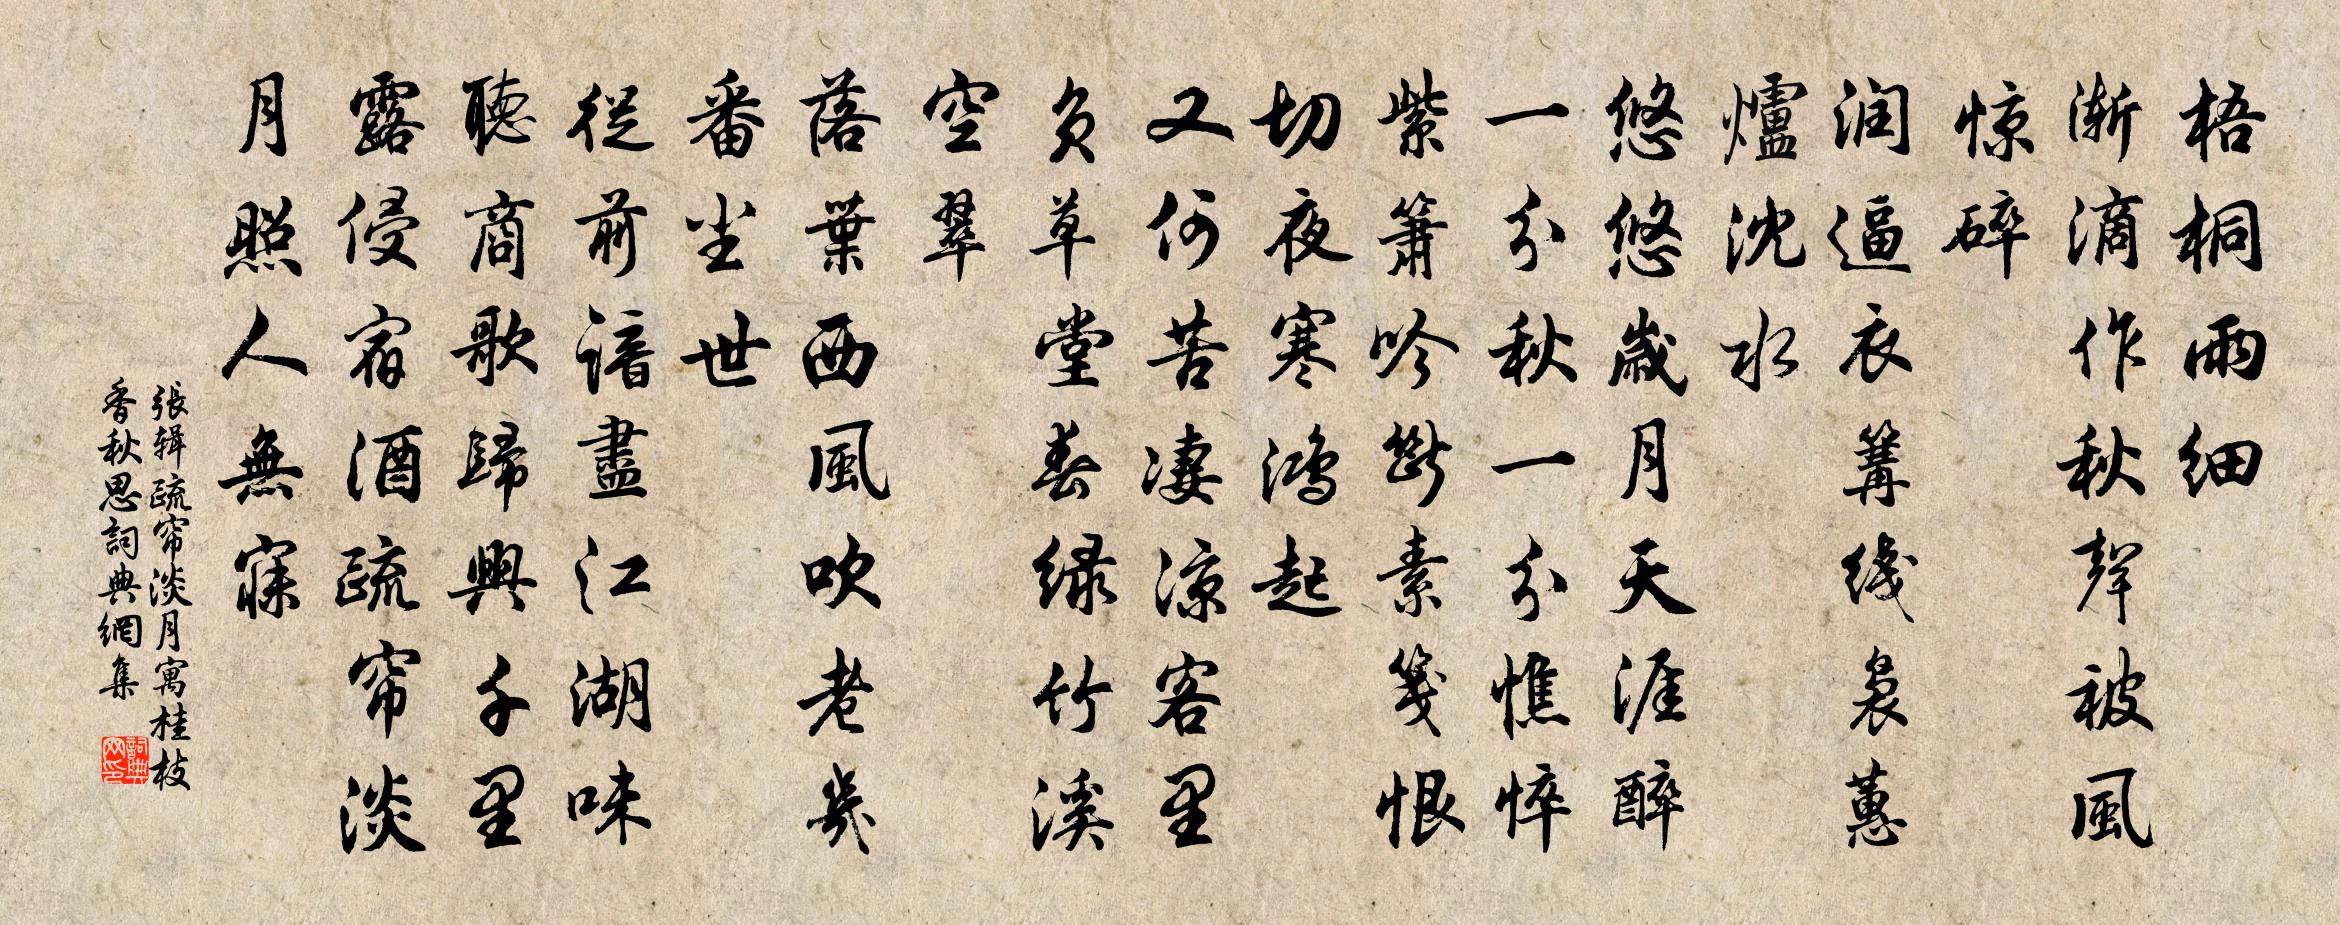 梧桐雨細
漸滴作秋聲被風
惊碎
润逼衣篝线裊蕙
爐沈水
悠悠歲月天涯醉
一分秋一分憔悴
紫簫吟斷素箋恨
切夜寒鴻起
又何苦凄涼客里
負草堂春绿竹溪
空翠
落葉西風吹老幾
番尘世
從前谙盡江湖味
聽商歌歸興千里
露侵宿酒疏帘淡
月照人無寐
張辑疏帘淡月寓桂枝
香秋思詞典網集
詞典网印